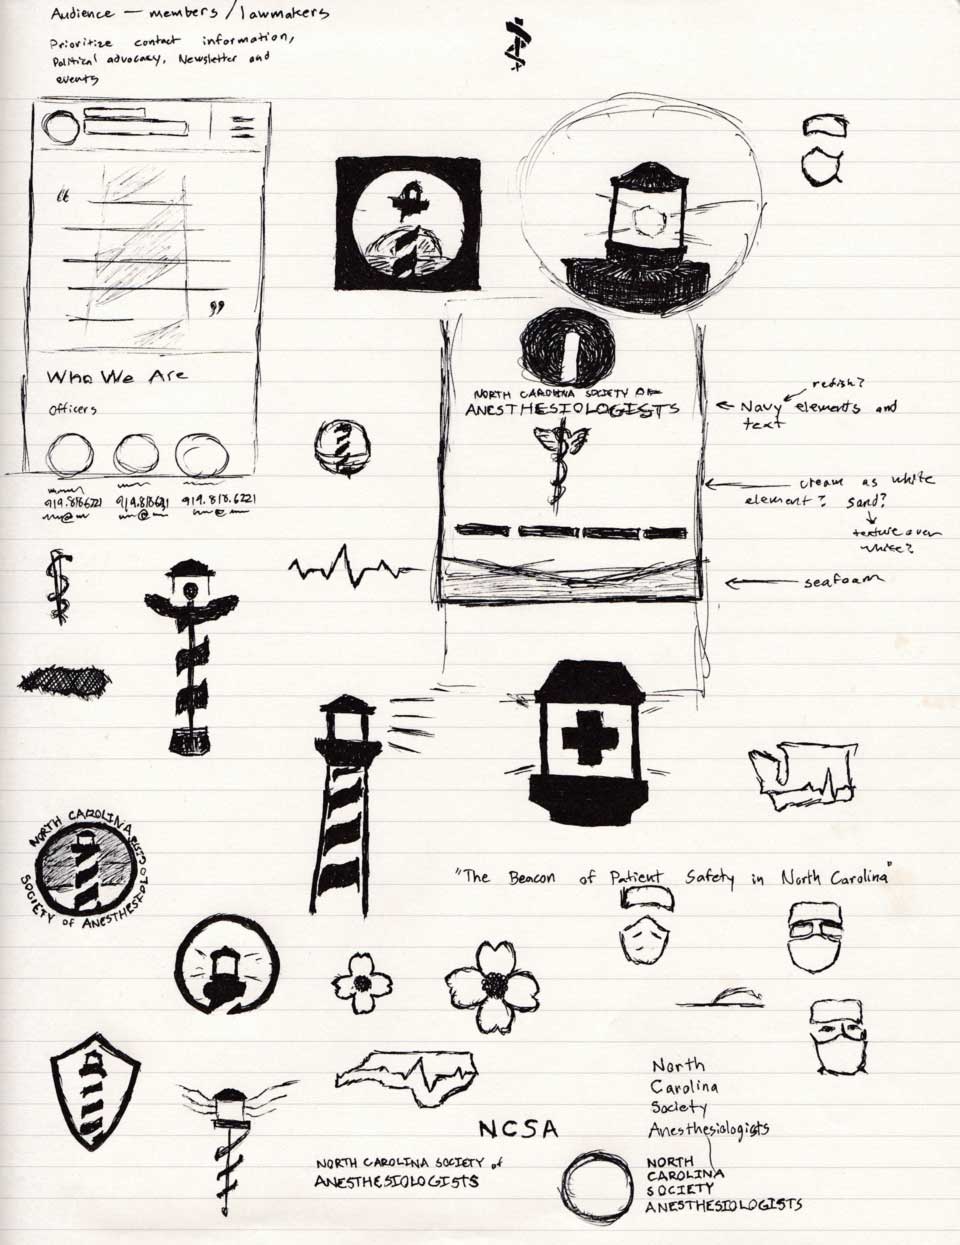 Audience — members / lawmakers
Prioritize contact information,
Political advocacy, Newsletter and
events
“
”
Who We Are
Officers
919.818.6221 919.818.6221 919.818.6221
NORTH CAROLINA SOCIETY OF
ANESTHESIOLOGISTS
redish?
Navy elements and
text
cream as white
element? sand?
texture over
white?
seafoam
NORTH CAROLINA
SOCIETY OF ANESTHESIOLOGISTS
"The Beacon of Patient Safety in North Carolina"
North
Carolina
Society
Anesthesiologists
NCSA
NORTH CAROLINA SOCIETY of
ANESTHESIOLOGISTS
NORTH
CAROLINA
SOCIETY
ANESTHESIOLOGISTS